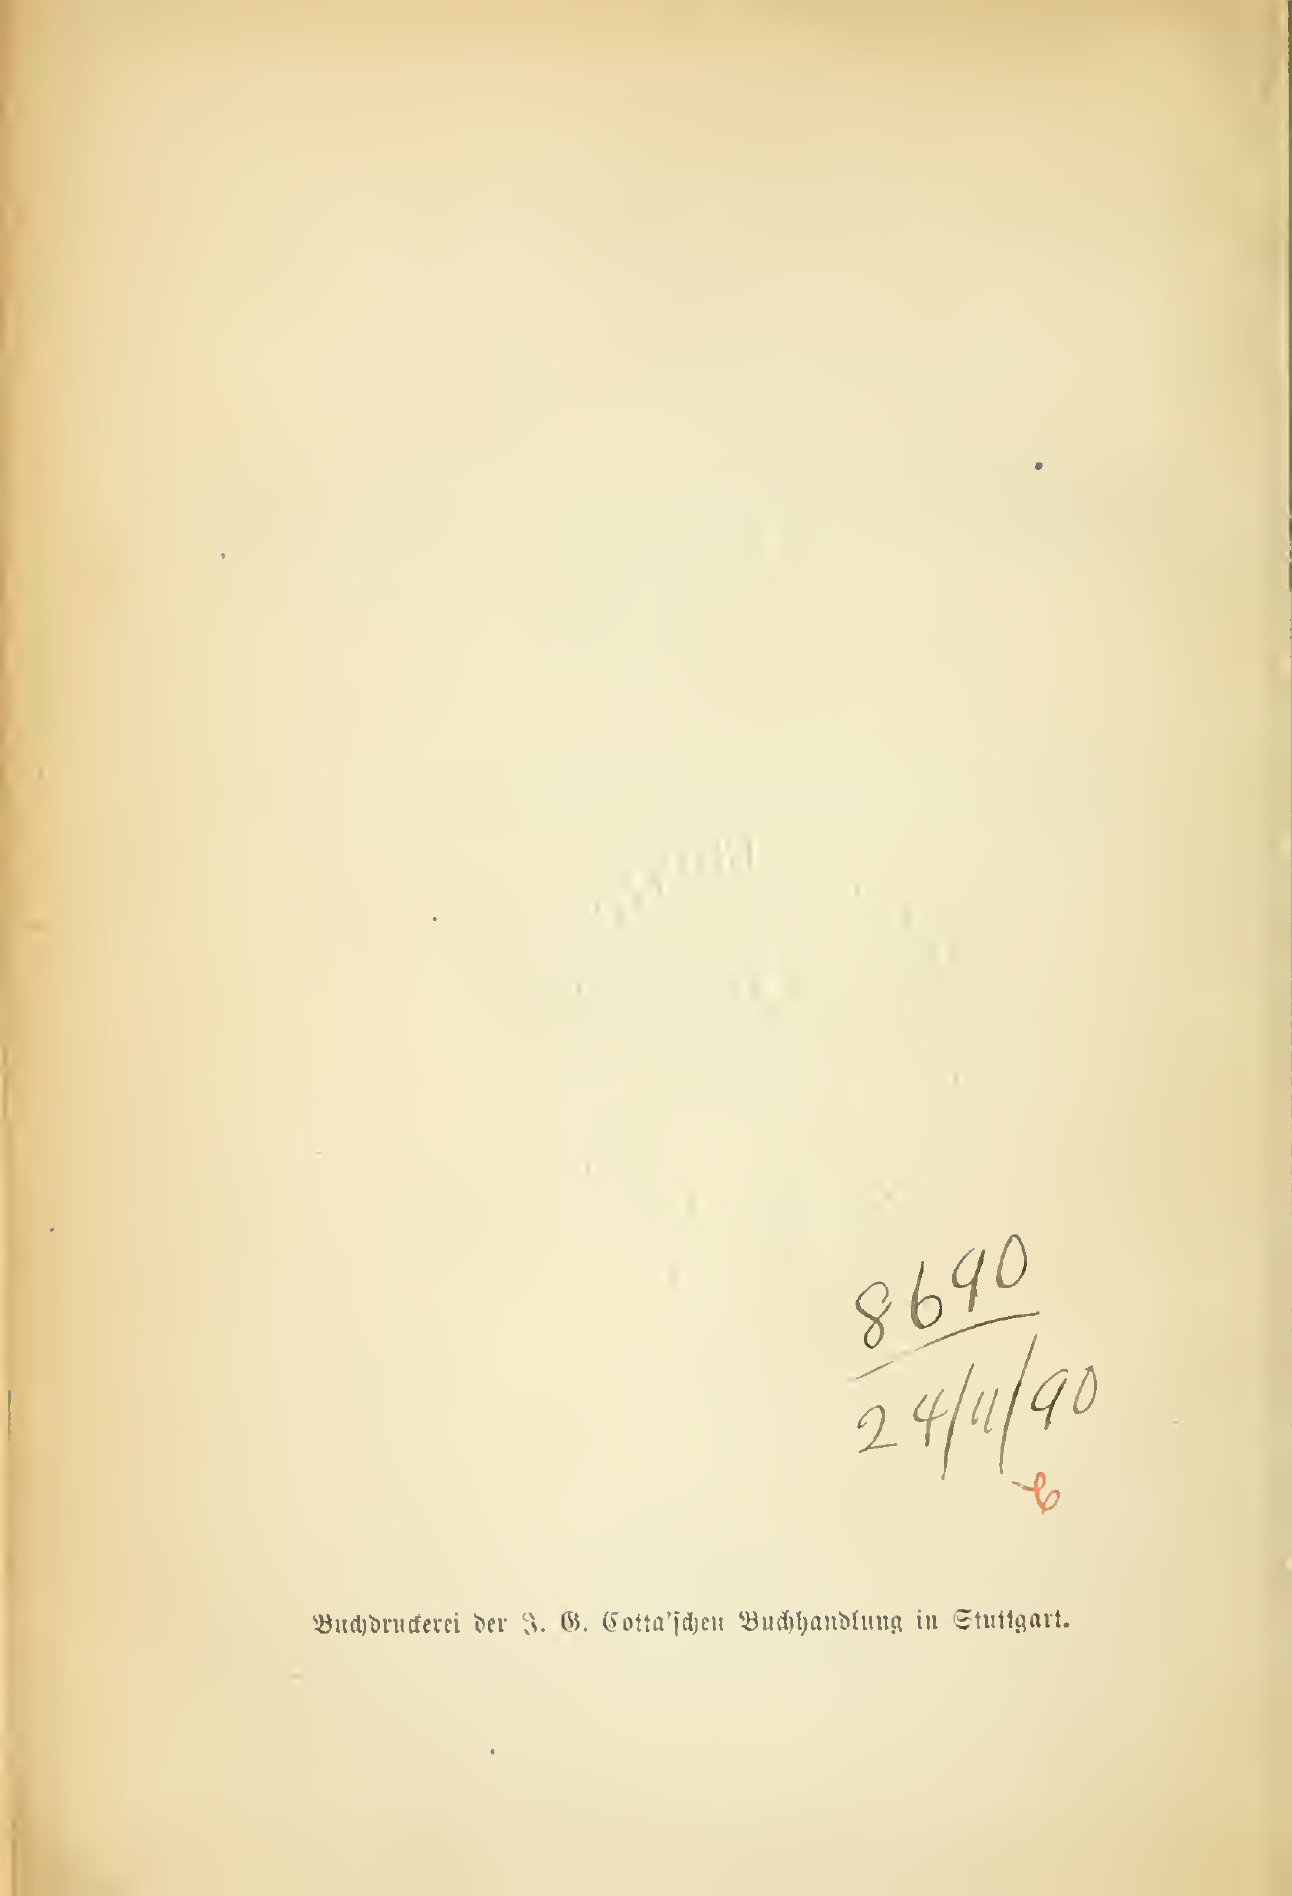 8690
24/11/90
Buchdruckerei der J. G. Cotta'schen Buchhandlung in Stuttgart.